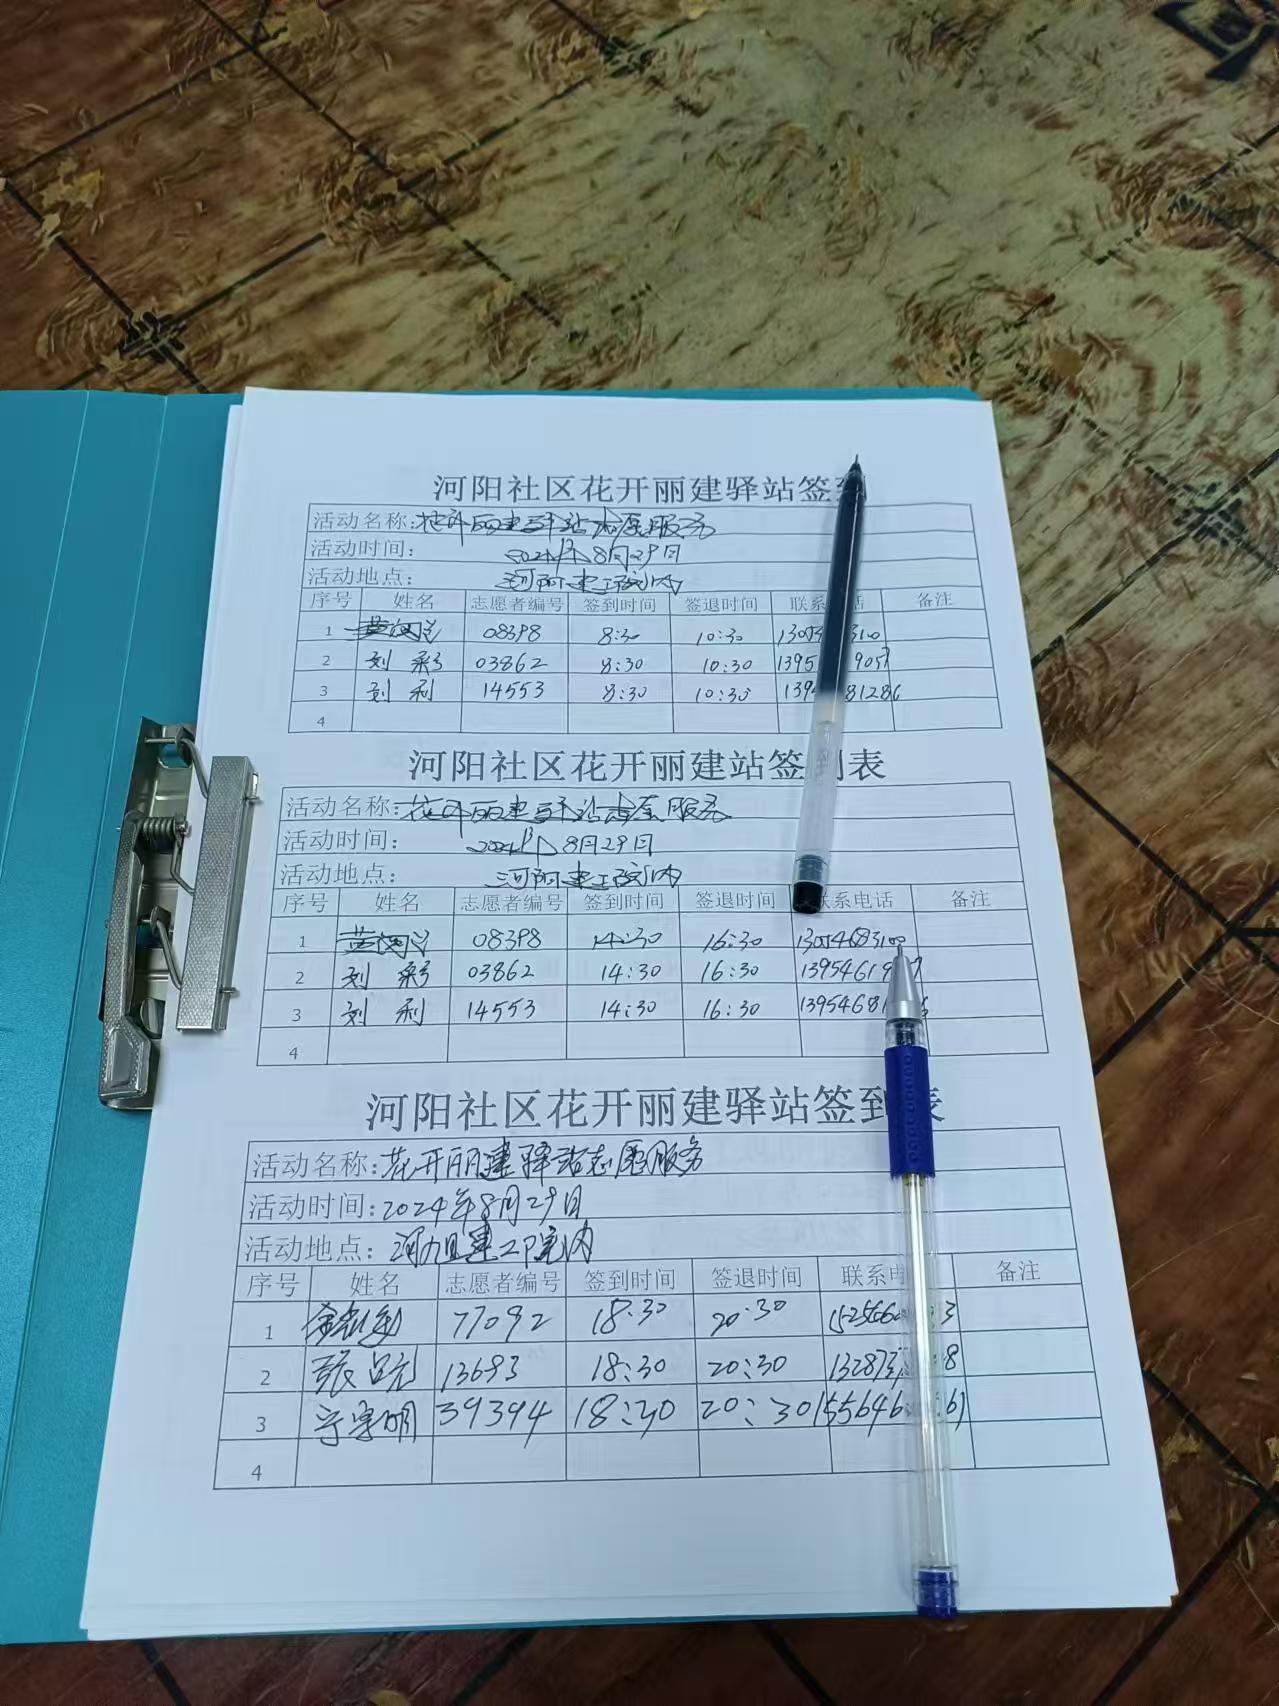 河阳社区花开丽建驿站签到
活动名称:花开丽建驿站志愿服务
活动时间: 2024年8月29日
活动地点: 河阳建工院内
序号 姓名 志愿者编号 签到时间 签退时间 联系 话 备注
1 08398 8:30 10:30
2 刘 彩 03862 8:30 10:30
3 刘 利 14553 8:30 10:30
4
河阳社区花开丽建站签到表
活动名称:花开丽建驿站志愿服务
活动时间: 2024年8月29日
活动地点: 河阳建工院内
序号 姓名 志愿者编号 签到时间 签退时间 联系电话 备注
1 08398 14:30 16:30 13054683100
2 刘 彩 03862 14:30 16:30
3 刘 利 14553 14:30 16:30
4
河阳社区花开丽建驿站签到表
活动名称:花开丽建驿站志愿服务
活动时间:2024年8月29日
活动地点: 河阳建工院内
序号 姓名 志愿者编号 签到时间 签退时间 联系电 备注
1 77092 18:30 20:30
2 13693 18:30 20:30
3 39394 18:30 20:30
4